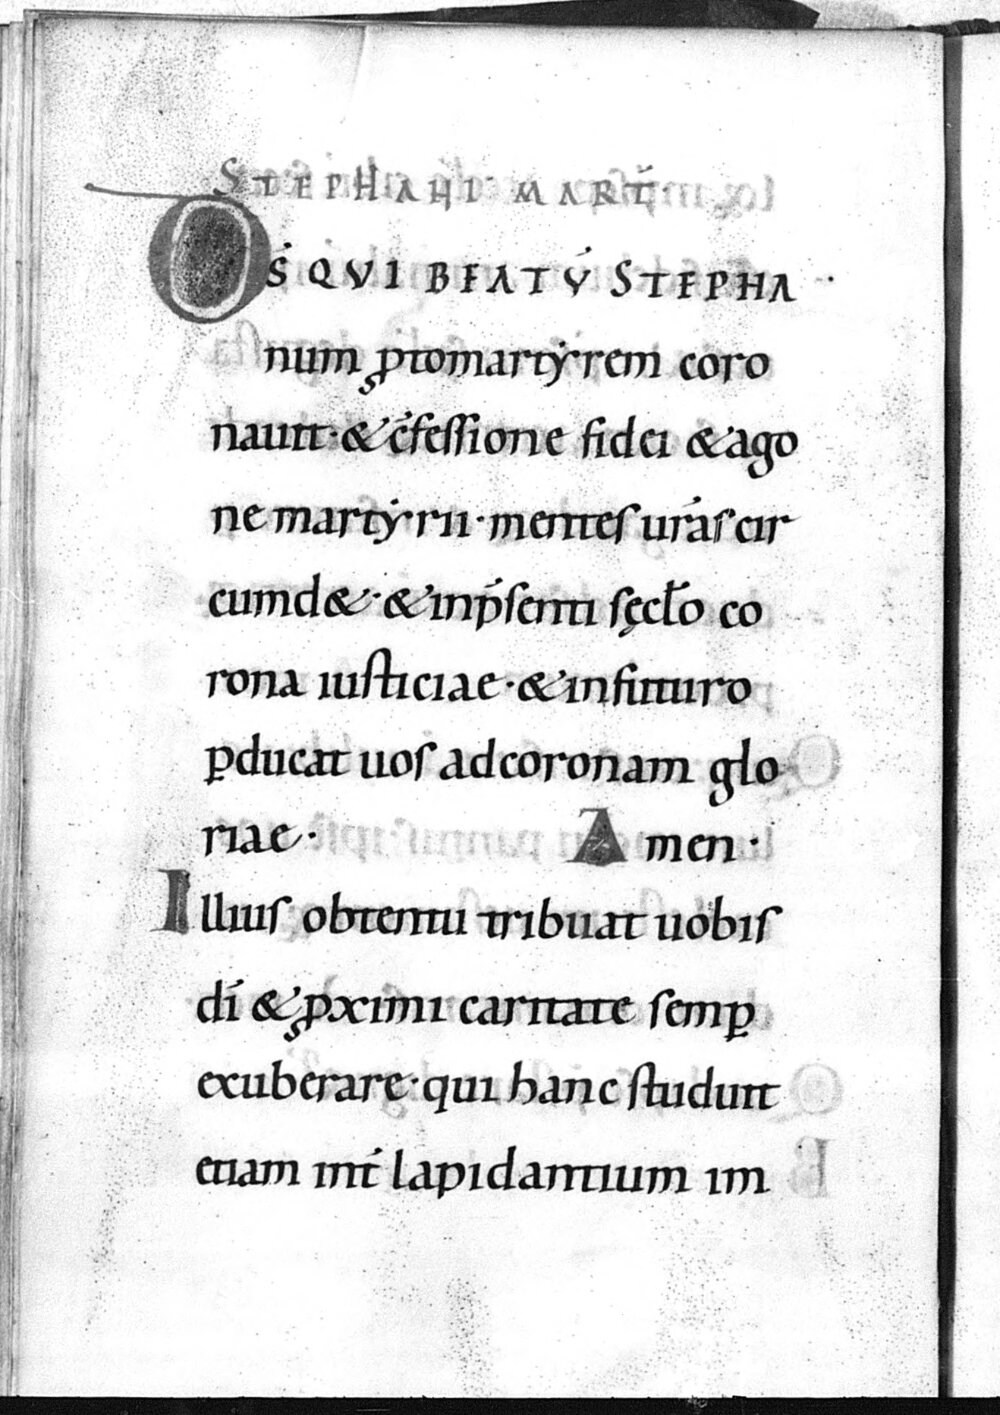 STEPHANI MART̄·
D̄S QVI BEATV̄ STEPHA·
num ꝓtomartẏrem coro
nauit· & c̄fessione fidei & ago
ne martẏrii· mentes ur̄as cir
cumd&· & in p̄senti sęcl̄o co
rona iusticiae· & in futuro
ꝑducat uos ad coronam glo
riae· Amen·
Illius obtentu tribuat uobis
dī & ꝓximi caritate semꝑ
exuberare· qui hanc studuit
etiam int̄ lapidantium im